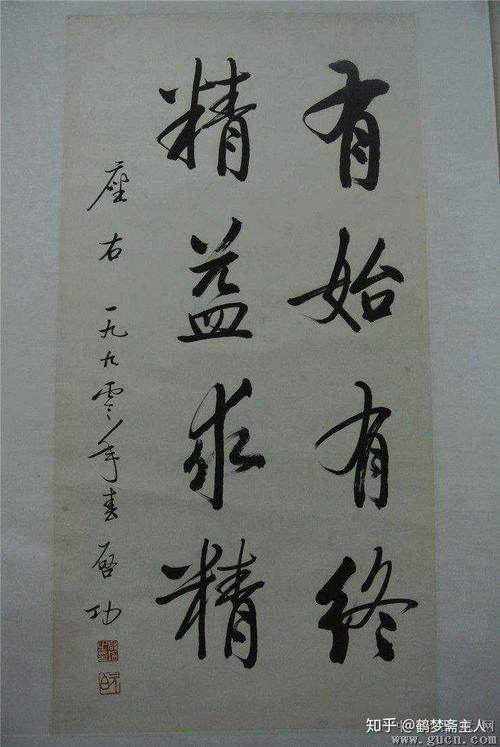 有始有终
精益求精
座右 一九九零年春 启功
知乎 @鹤梦斋主人
www.gucn.com